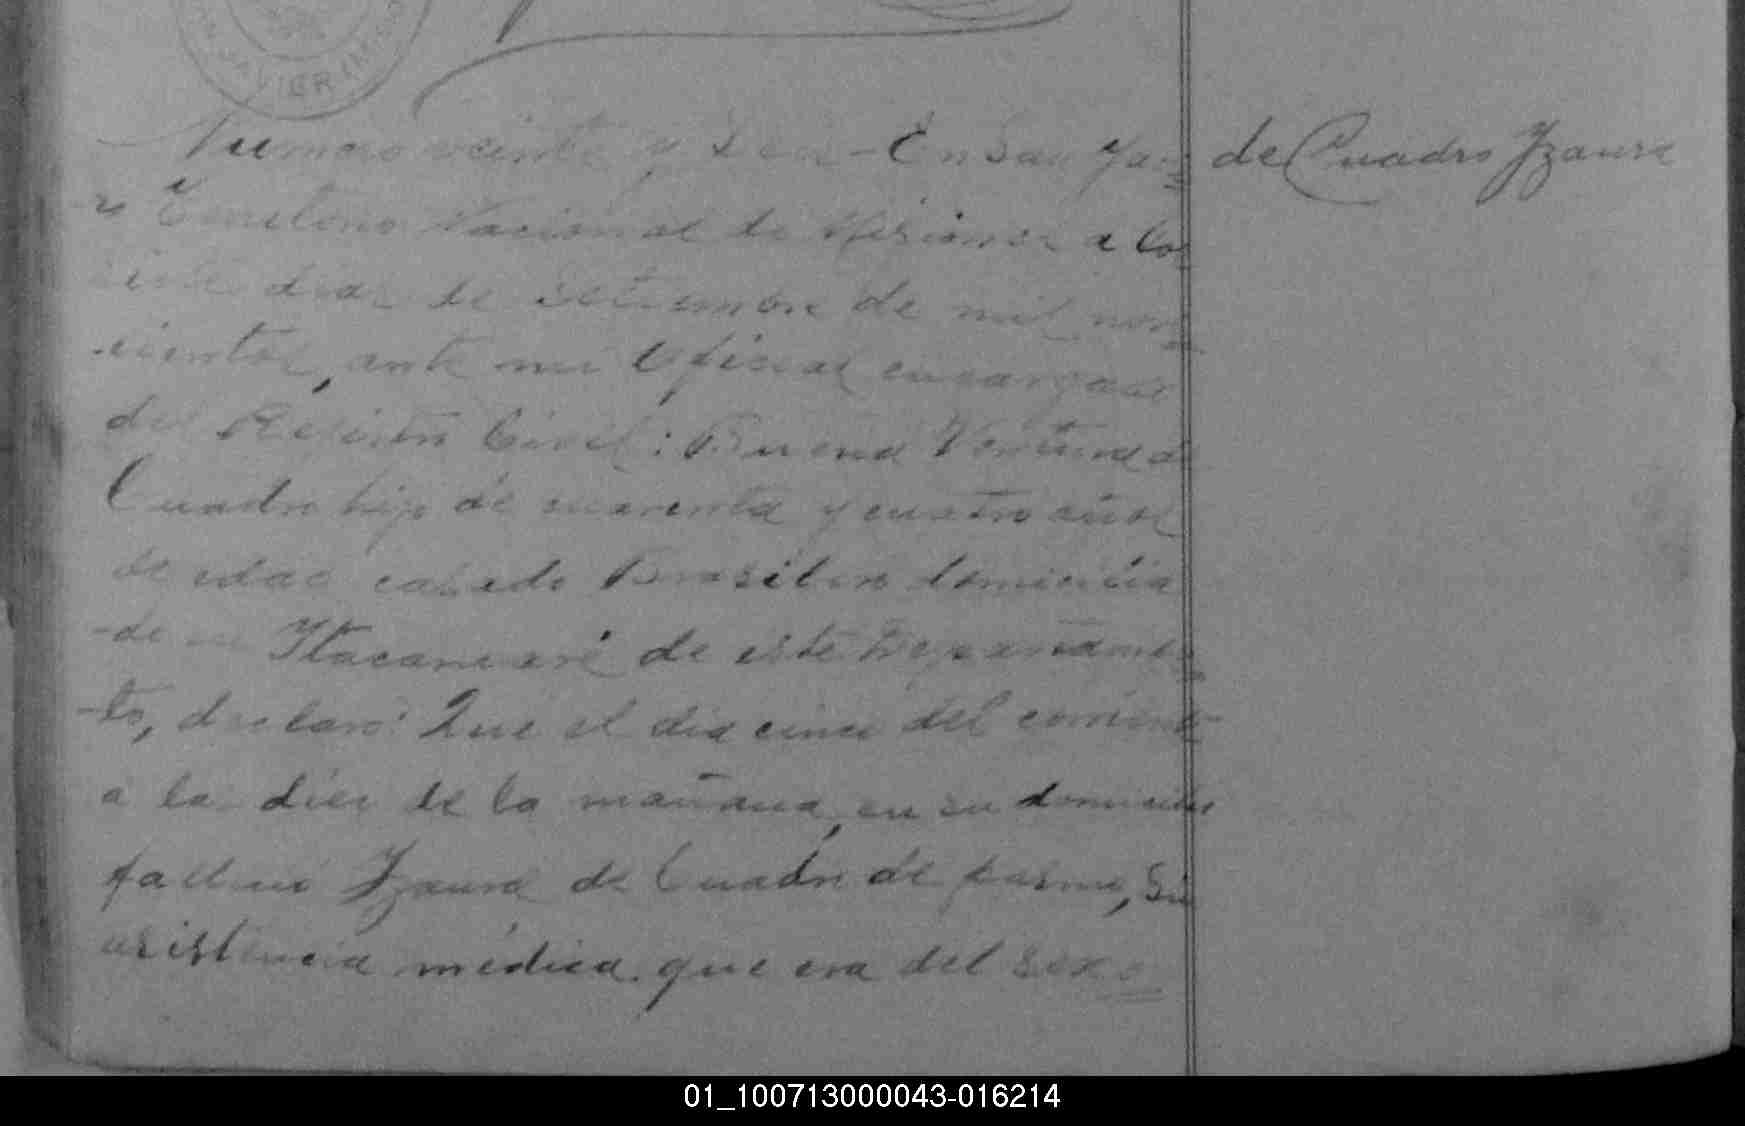 JAVIER
Numero veinte y Seis - En San Javi
de Cuadro Yzaura
Territorio Nacional de Misiones a los
siete dias de Setiembre de mil nove
cientos, ante mi Oficial encargado
del Rejistro Civil: Buena Ventura de
Cuadro hijo de cuarenta y cuatro años
de edad casado Brasilero domicilia
-do en Itacaruaré de este Departamen
-to, declaró: Que el dia cinco del corriente
a la diez de la mañana, en su domicilio
falleció Yzaura de Cuadro de pasmo, sin
asistencia médica. que era del sexo
01_100713000043-016214